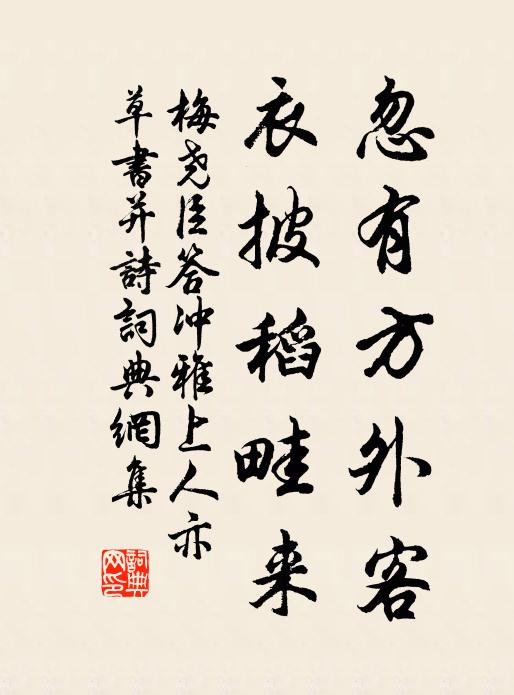 忽有方外客
衣披稻畦来
梅尧臣答冲雅上人亦
草書并詩詞典網集
詞典
网印